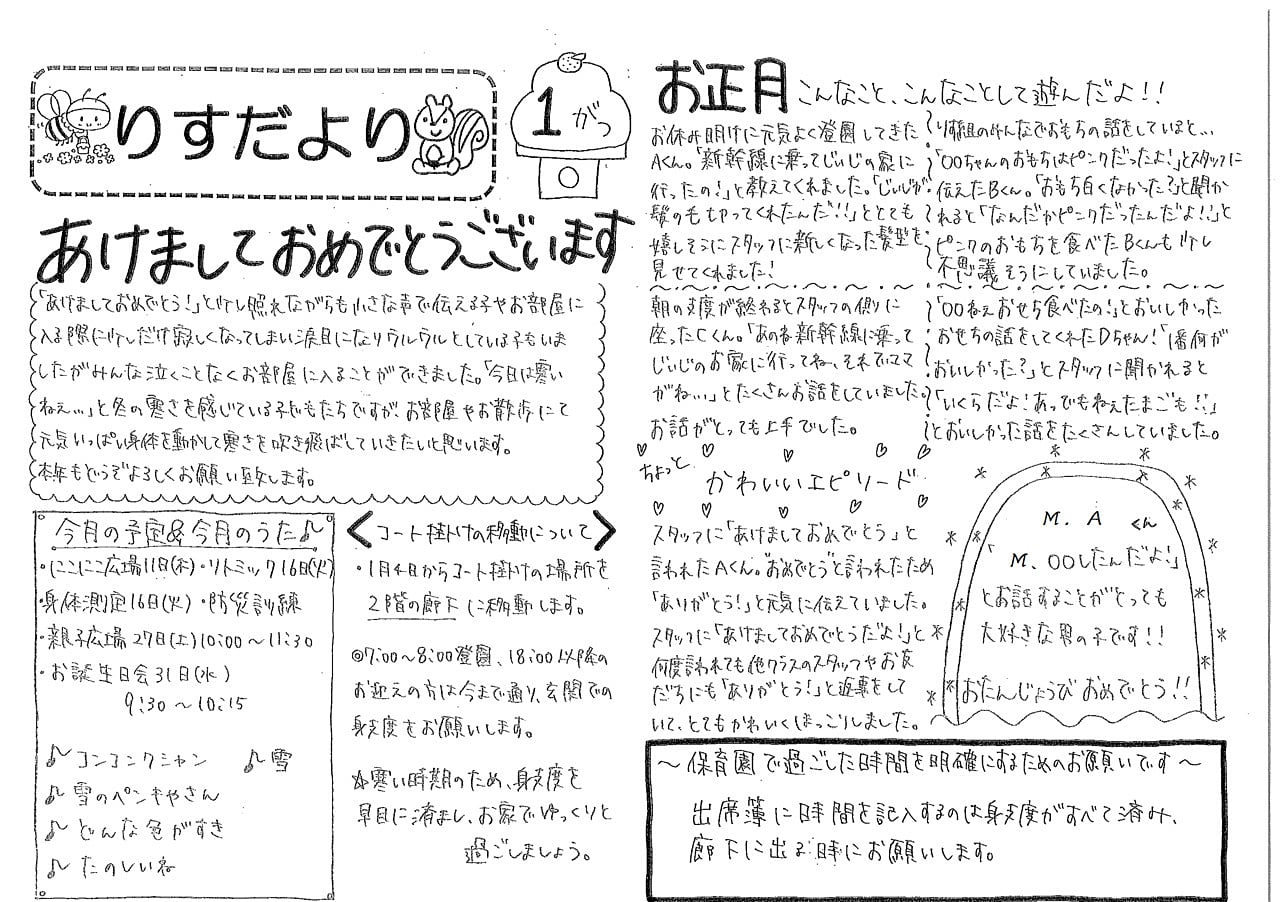 りすだより
1がつ
あけましておめでとうございます
「あけましておめでとう!」と少し照れながらも小さな声で伝える子やお部屋に
入る際に少しだけ寂しくなってしまい涙目になりウルウルとしている子もいま
したがみんな泣くことなくお部屋に入ることができました。「今日は寒い
ねぇ…」と冬の寒さを感じている子どもたちですが、お部屋やお散歩にて
元気いっぱい身体を動かして寒さを吹き飛ばしていきたいと思います。
本年もどうぞよろしくお願い致します。
今月の予定&今月のうた♪
・にこにこ広場11日(木)・リトミック16日(火)
・身体測定16日(火)・防災訓練
・親子広場27日(土)10:00～11:30
・お誕生日会31日(水)
9:30～10:15
♪コンコンクシャン ♪雪
♪雪のペンキやさん
♪どんな色がすき
♪たのしいね
<コート掛けの移動について>
・1月4日からコート掛けの場所を
2階の廊下に移動します。
◎7:00～8:00登園、18:00以降の
お迎えの方は今まで通り、玄関での
身支度をお願いします。
☆寒い時期のため、身支度を
早目に済まし、お家でゆっくりと
過ごしましょう。
お正月 こんなこと、こんなことして遊んだよ!!
お休み明けに元気よく登園してきた
Aくん。「新幹線に乗ってじいじの家に
行ったの!」と教えてくれました。「じいじが
髪の毛切ってくれたんだ!!」ととても
嬉しそうにスタッフに新しくなった髪型を
見せてくれました!
り組のみんなでおもちの話をしていると…
「〇〇ちゃんのおもちはピンクだったよ!」とスタッフに
伝えたBくん。「おもち白くなかった?」と聞か
れると「なんだかピンクだったんだよ!」と
ピンクのおもちを食べたBくんも少し
不思議そうにしていました。
朝の支度が終わるとスタッフの側に
座ったCくん。「あのね新幹線に乗って
じいじのお家に行ってね、それでママ
がね…」とたくさんお話をしていました。
お話がとっても上手でした。
「〇〇ねぇおせち食べたの!」とおいしかった
おせちの話をしてくれたDちゃん!「1番何が
おいしかった?」とスタッフに聞かれると
「いくらだよ!あっでもねぇたまごも!!」
とおいしかった話をたくさんしていました。
ちょっと
かわいいエピソード
スタッフに「あけましておめでとう」と
言われたAくん。おめでとうと言われたため
「ありがとう!」と元気に伝えていました。
スタッフに「あけましておめでとうだよ!」と
何度言われても他クラスのスタッフやお友
だちにも「ありがとう!」と返事をして
いて、とてもかわいくほっこりしました。
M.A くん
「M.〇〇したんだよ!」
とお話することがとっても
大好きな男の子です!!
おたんじょうび おめでとう!!
～保育園で過ごした時間を明確にするためのお願いです～
出席簿に時間を記入するのは身支度がすべて済み、
廊下に出る時にお願いします。